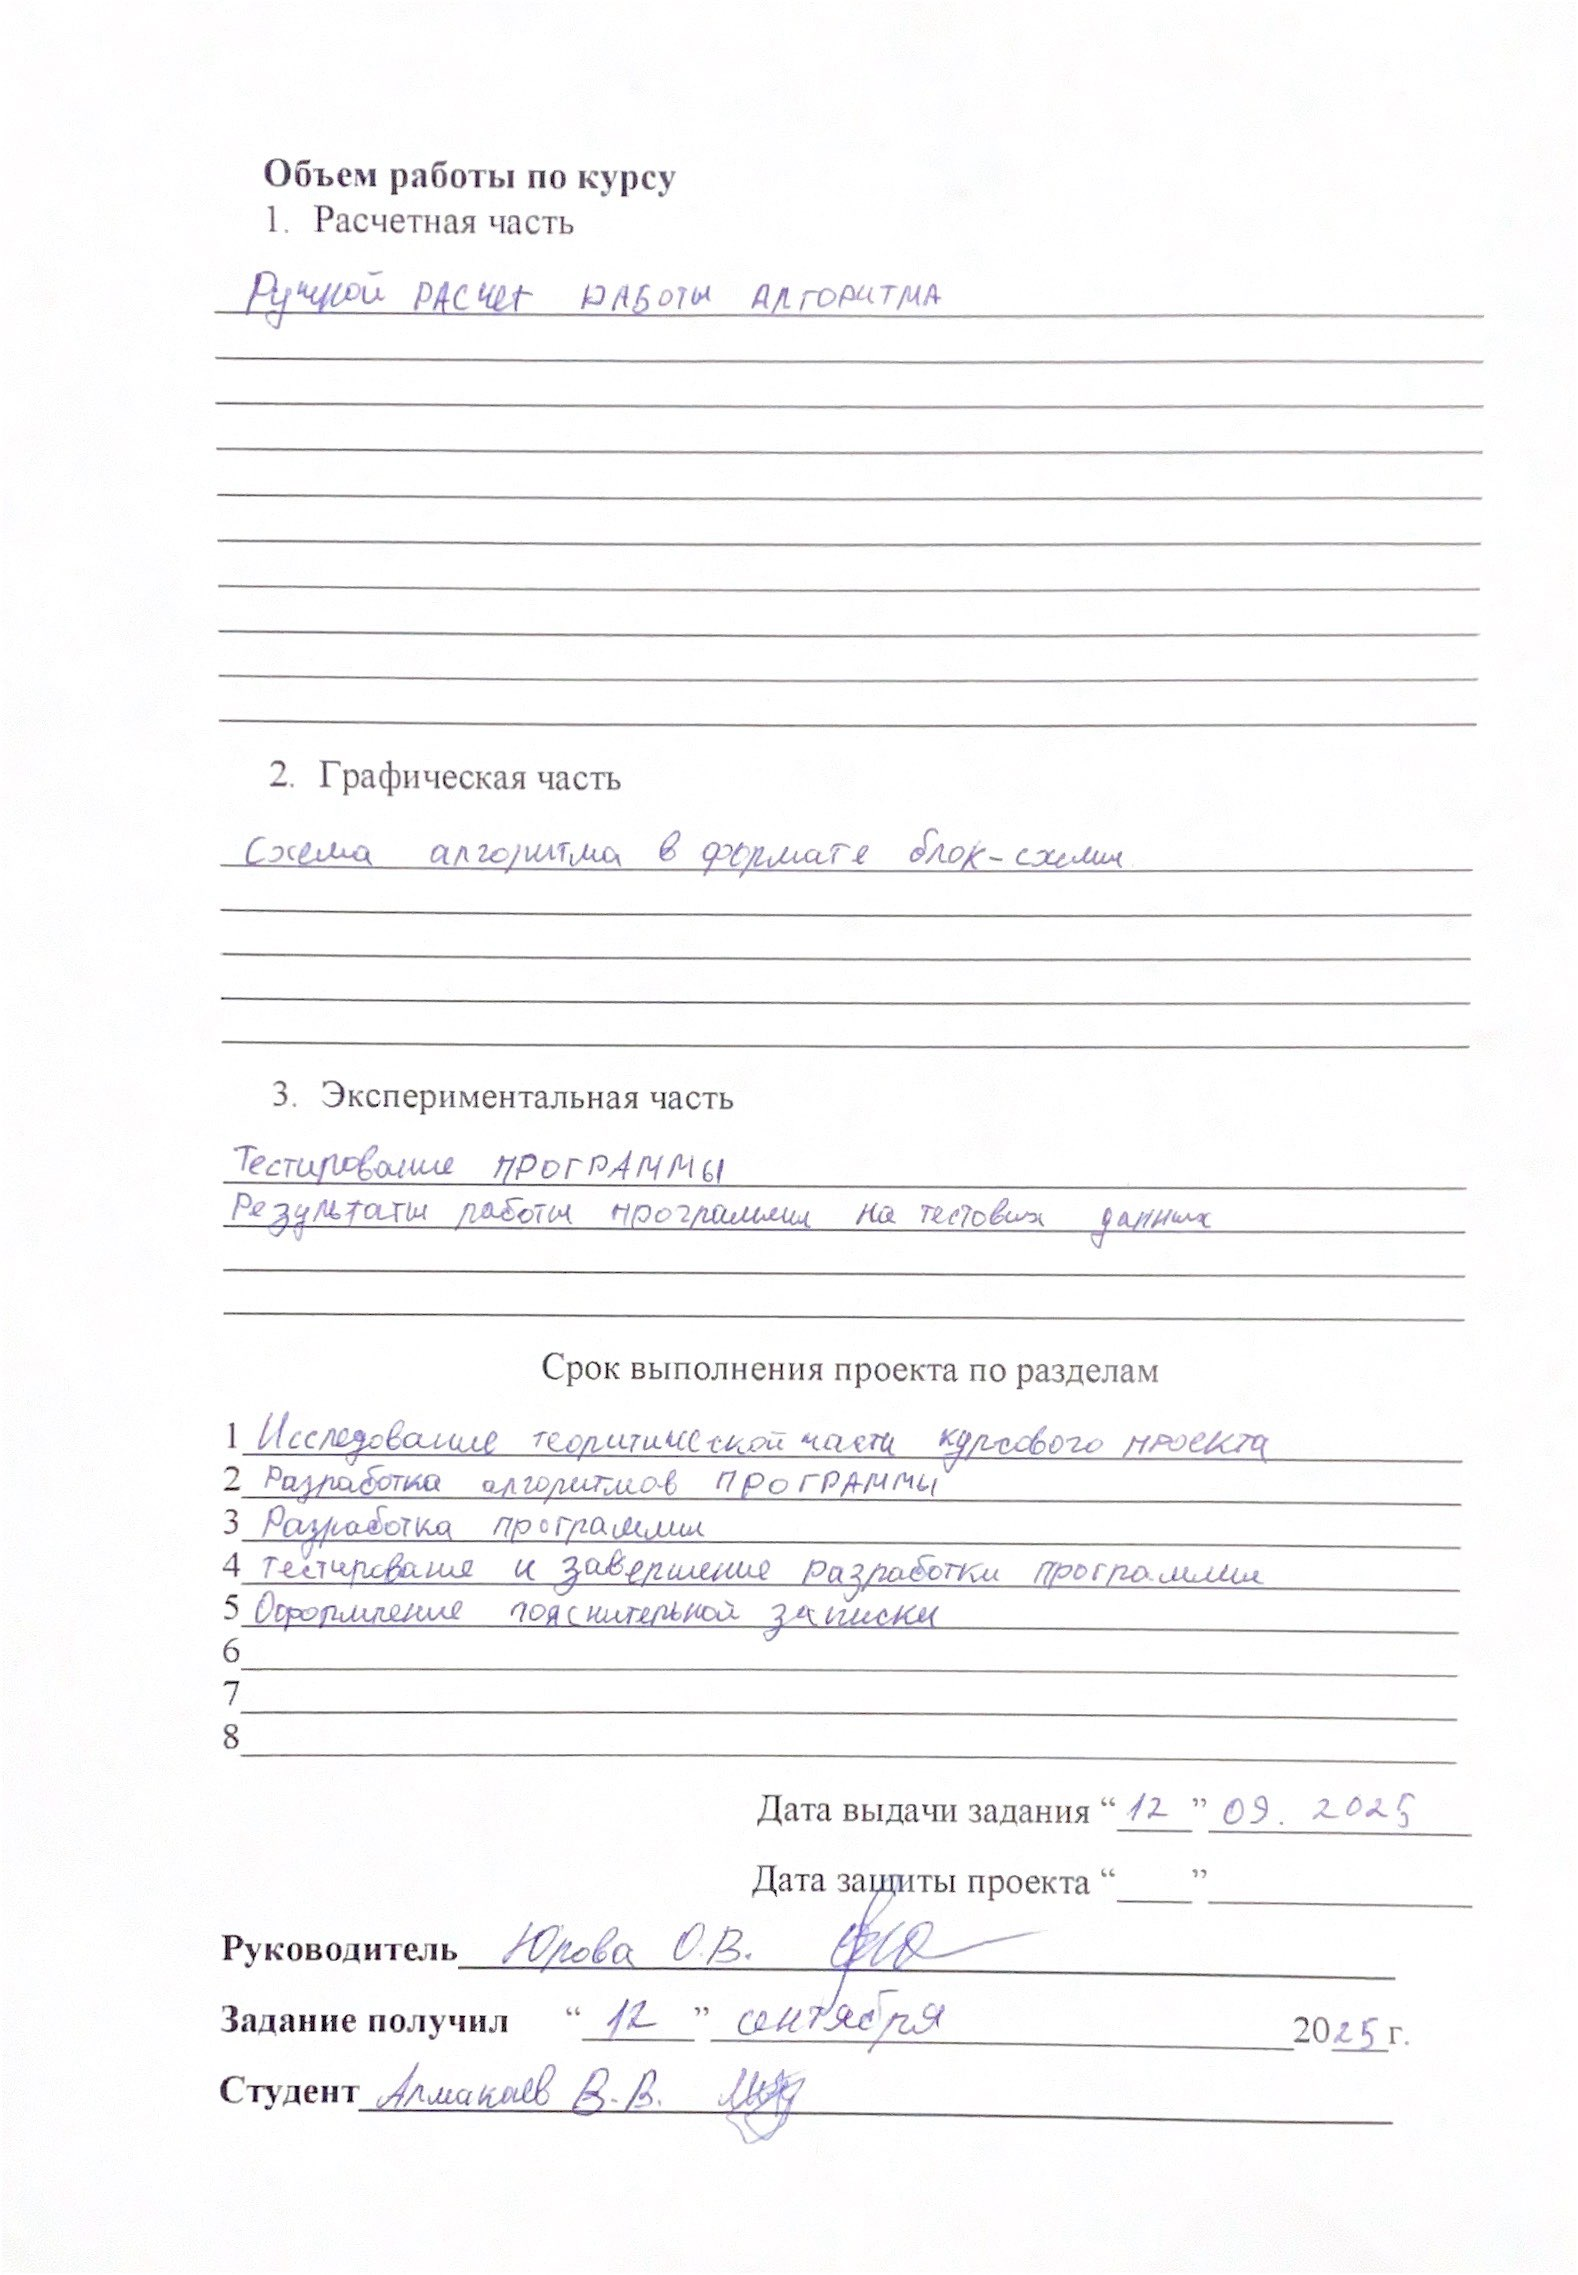 Объем работы по курсу
1. Расчетная часть
Ручной расчет работы алгоритма
2. Графическая часть
Схема алгоритма в формате блок-схемы
3. Экспериментальная часть
Тестирование программы
Результаты работы программы на тестовых данных
Срок выполнения проекта по разделам
1 Исследование теоритической части курсового проекта
2 Разработка алгоритмов программы
3 Разработка программы
4 Тестирование и завершение разработки программы
5 Оформление пояснительной записки
6
7
8
Дата выдачи задания “12” 09. 2025
Дата защиты проекта “____”
Руководитель Юрова О.В.
Задание получил “12” сентября 2025 г.
Студент Алмакаев В.В.